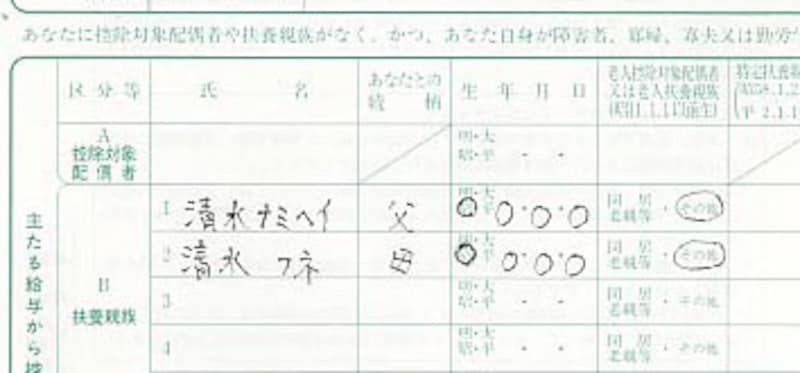 あなたに控除対象配偶者や扶養親族がなく、かつ、あなた自身が障害者、寡婦、寡夫又は勤労
区分等 氏 名 あなたとの続柄 生年月日 老人控除対象配偶者又は老人扶養親族
A 控除対象配偶者 明・大 昭・平 ・ ・
主たる給与から控
B 扶養親族
1 清水ナミヘイ 父 明・大 昭・平 ○・○・○ 同居老親等・その他
2 清水 フネ 母 明・大 昭・平 ○・○・○ 同居老親等・その他
3 明・大 昭・平 ・ ・ 同居老親等・その他
4 明・大 昭・平 ・ ・ 同居老親等・その他